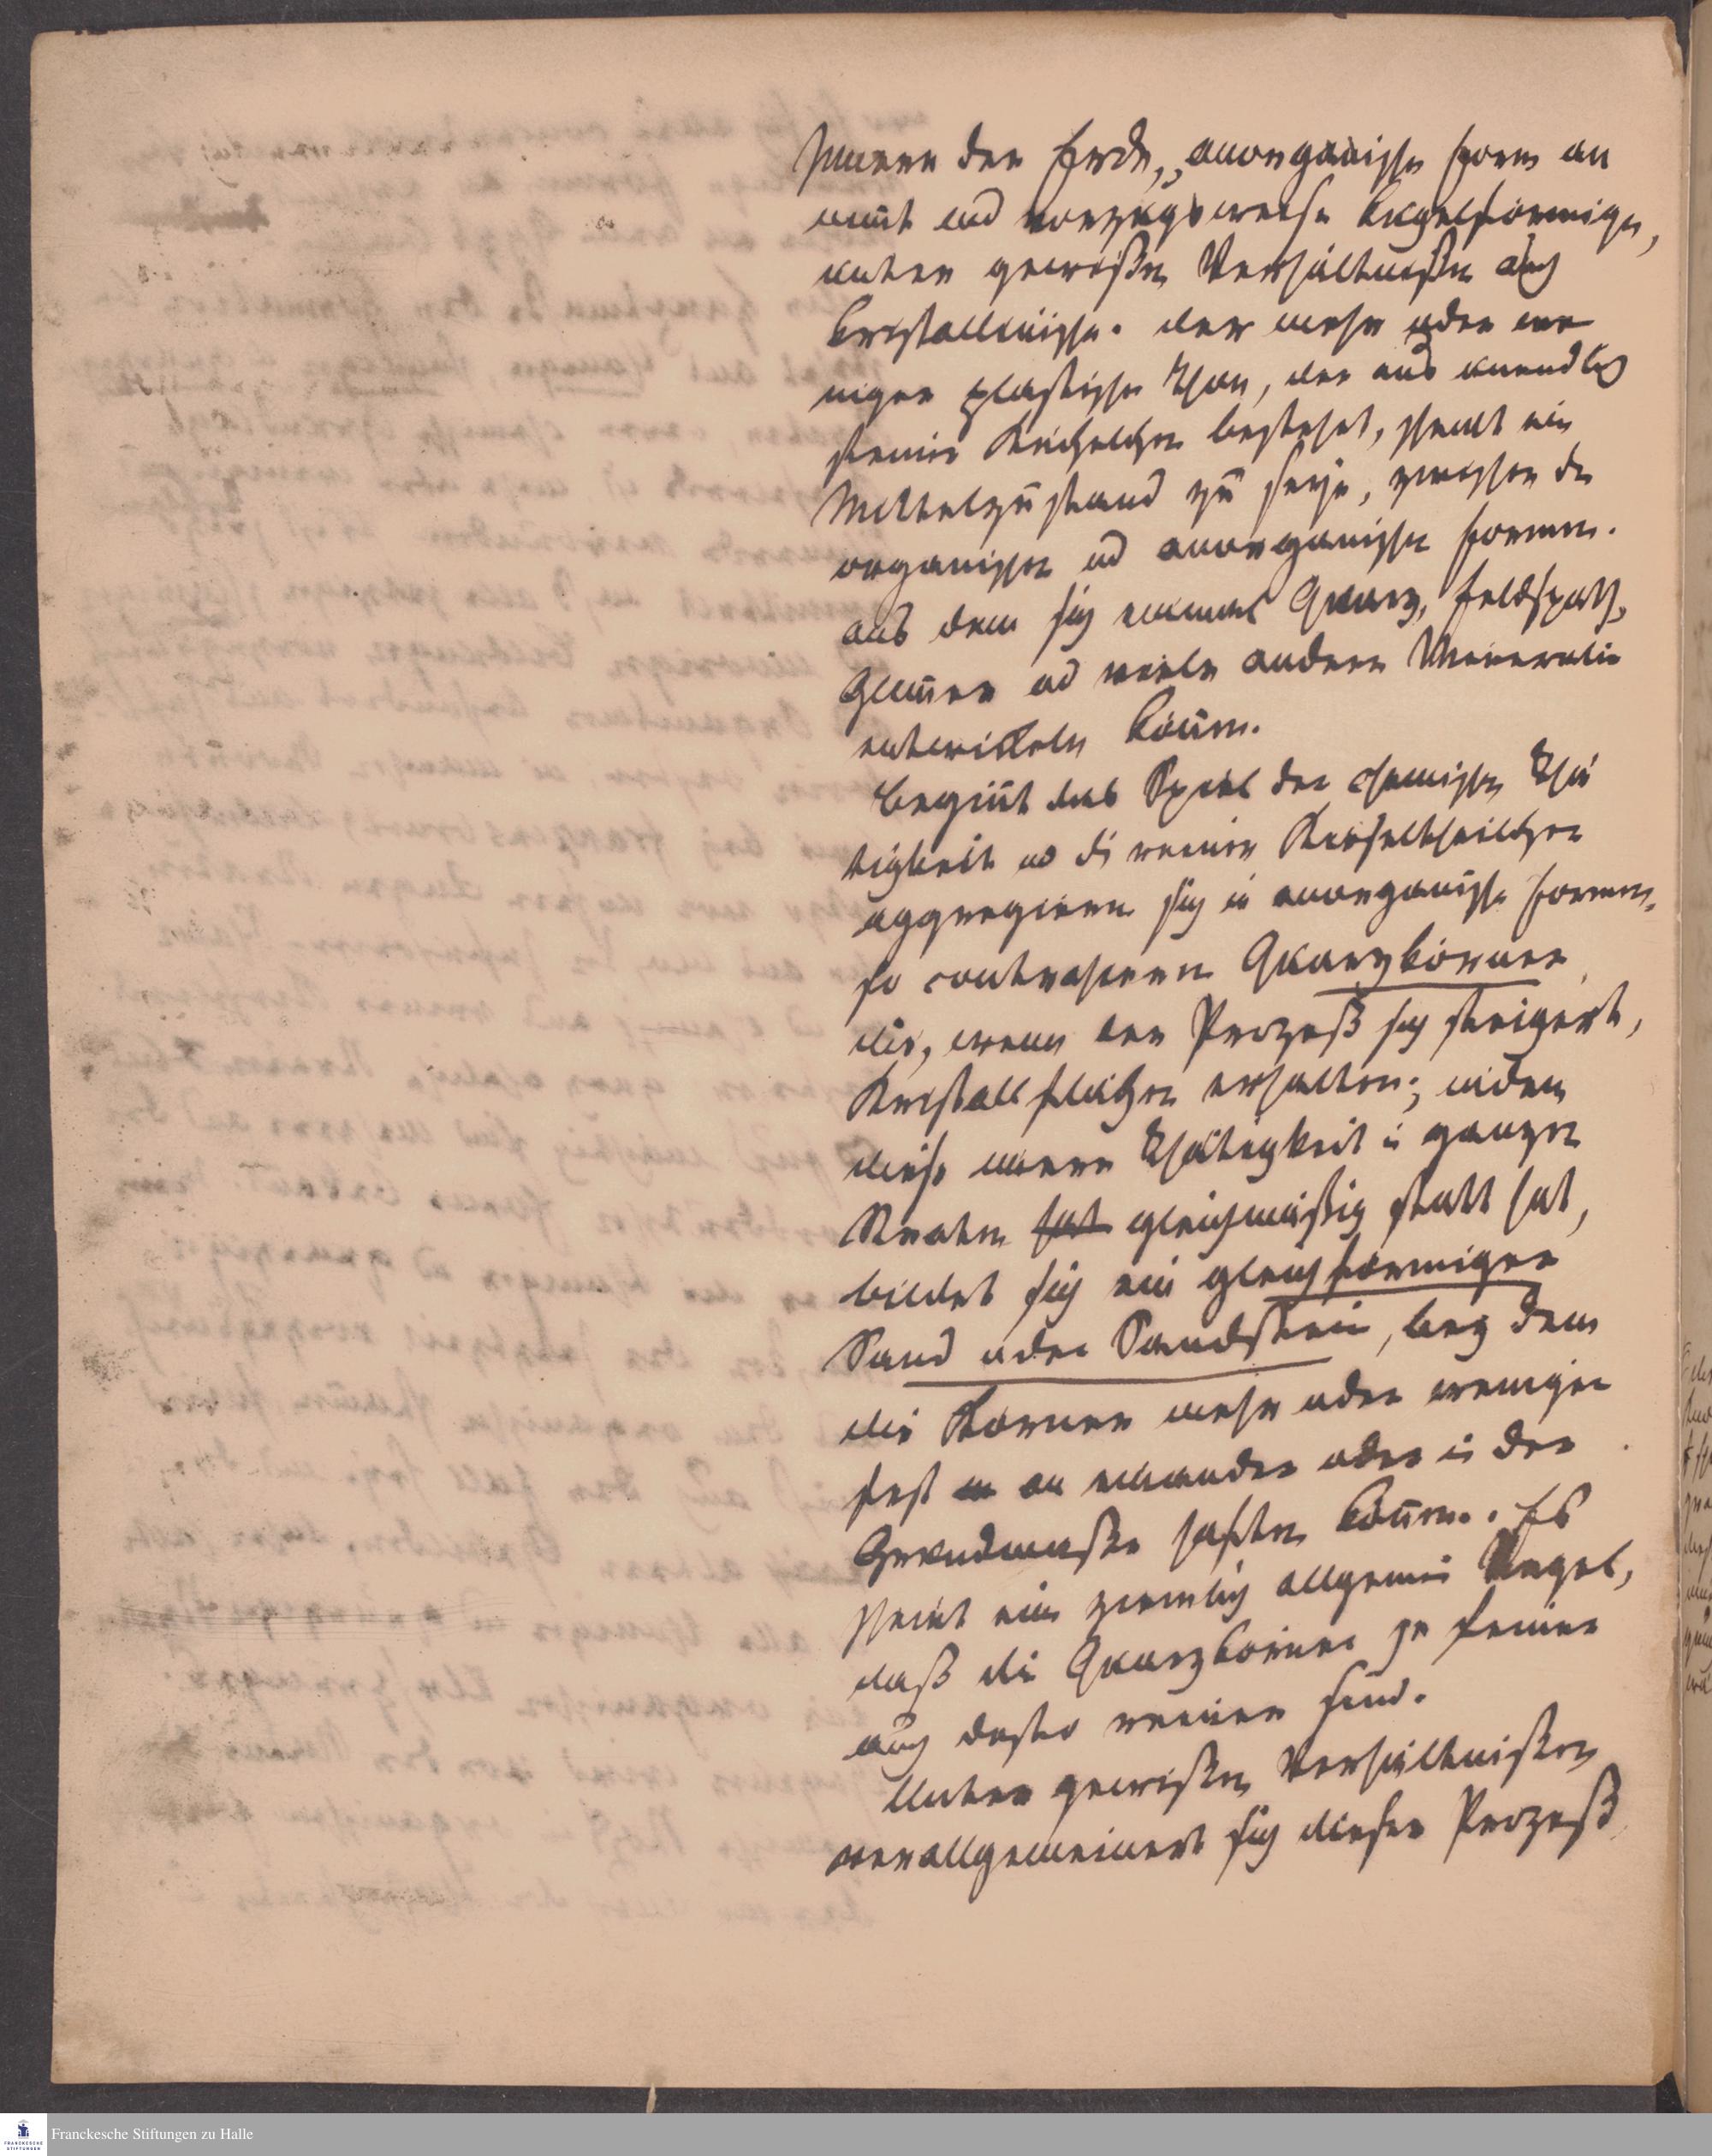 Innern der Erde, anorganische Form an
nim̅t und vorzugsweise kugelförmige,
unter gewißen Verhältnißen auch
kristallinische. der mehr oder we
niger plastische Thon, der aus unendlich
feinen Kügelchen bestehet, scheint ein
Mittelzustand zu seyn, zwischen den
organischen und anorganischen Formen.
aus dem sich einmal Quarz, Feldspath,
Glim̅er und viele andere Mineralien
entwickeln kön̅en.
Begin̅t das Spiel der chemischen Thä
tigkeit und die reinen Kieseltheilchen
aggregieren sich in anorganische Formen,
so entstehen Quarzkörner
die, wenn der Prozeß sich steigert,
Kristallflächen erhalten; indem
diese innere Thätigkeit in ganzen
Straten hat gleichmäßig statt hat,
bildet sich ein gleichförmiger
Sand oder Sandstein, bey dem
die Körner mehr oder weniger
fest an einander oder in der
Grundmaße haften kön̅en. Es
scheint eine ziemlich allgemeine Regel,
daß die Quarzkörner je feiner
auch desto reiner sind.
Unter gewißen Verhältnißen
verallgemeinert sich dieser Prozeß
Franckesche Stiftungen zu Halle